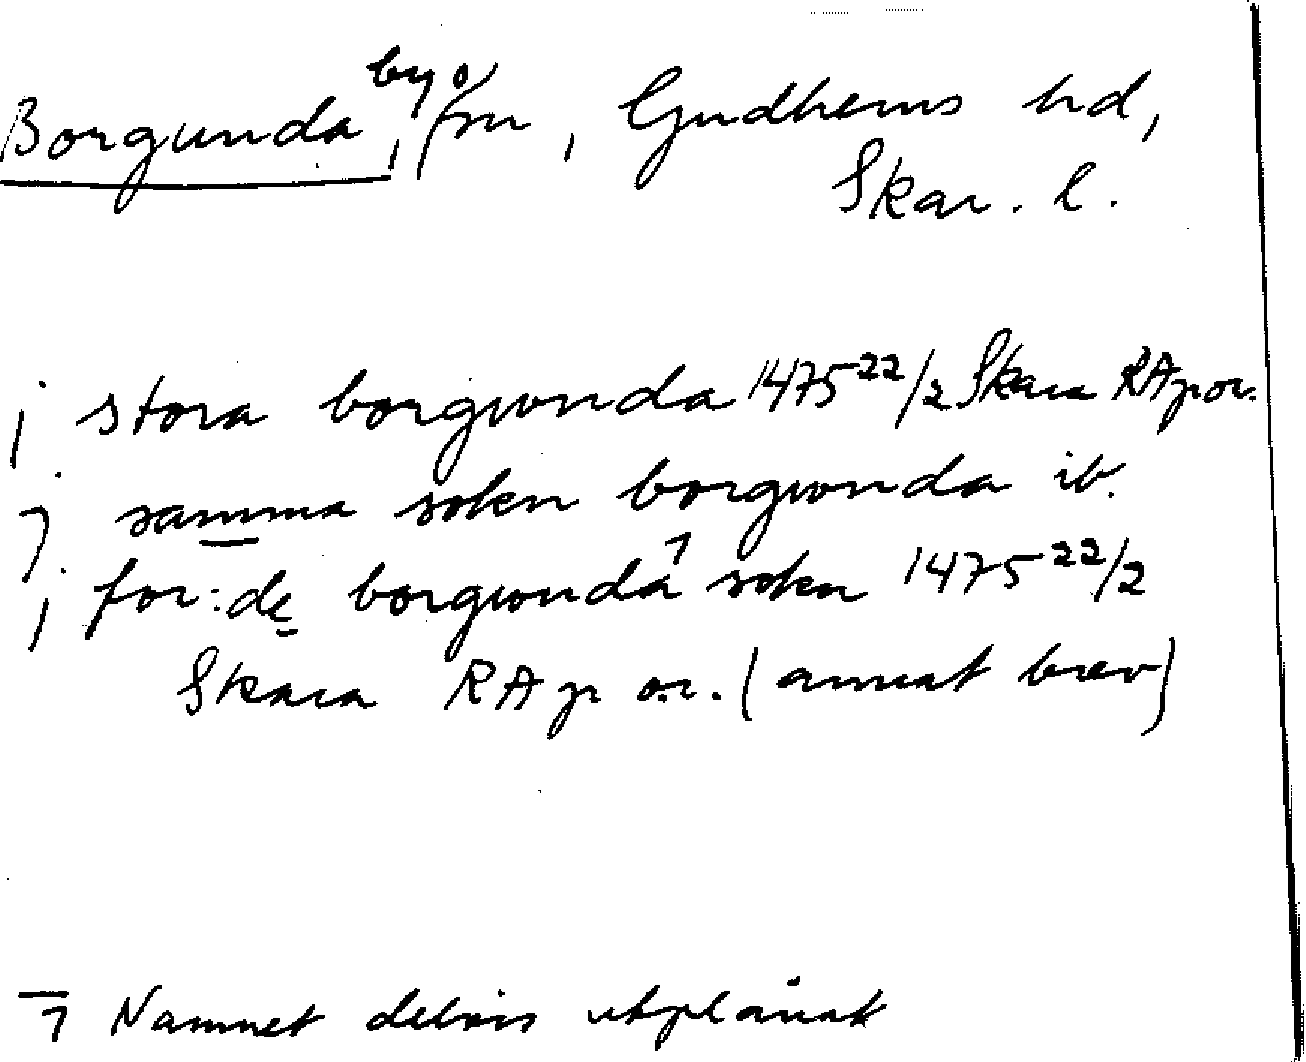 Borgunda, by o/sn, Gudhems hd,
Skar. l.
j stora borgwnda 1475 22/2 Skara RA p or.
j samma sokn borgwnda ib.
j for:de borgwnda ⁊ sokn 1475 22/2
Skara RA p or. (annat brev)
⁊ Namnet delvis utplånat